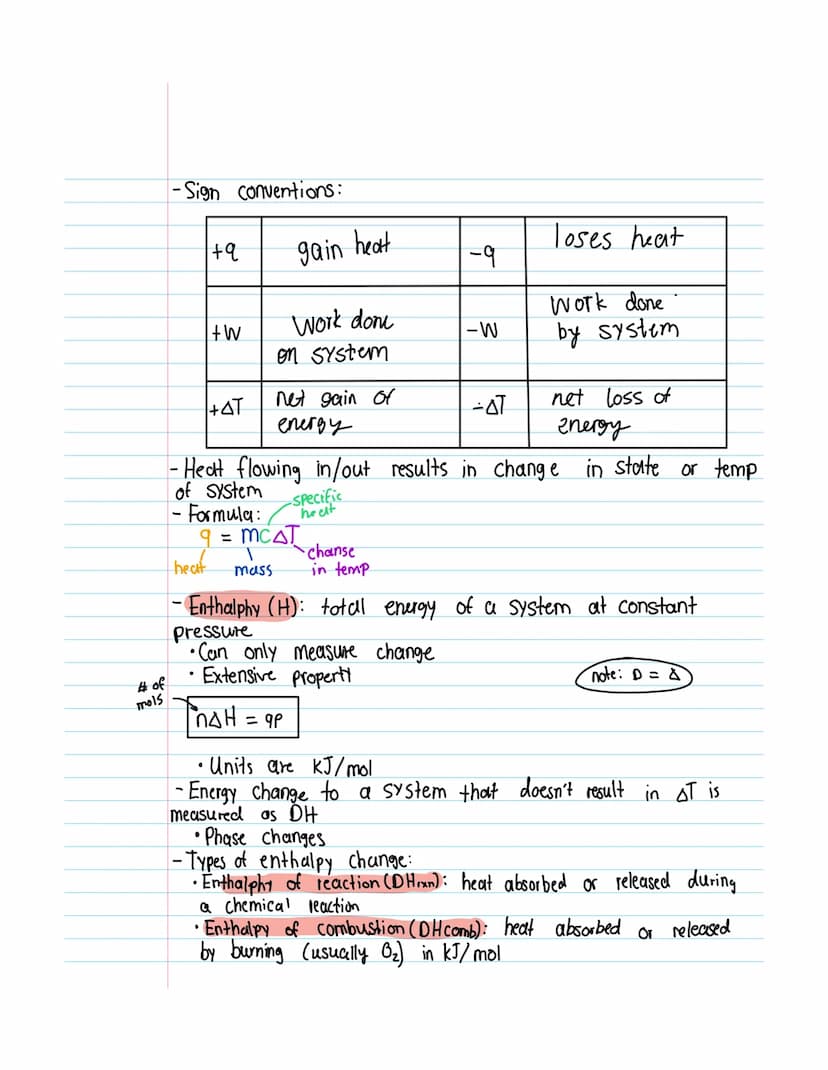 - Sign conventions:
+q gain heat -q loses heat
+W Work done on system -W Work done by system
+ΔT net gain of energy -ΔT net loss of energy
- Heat flowing in/out results in change in state or temp
of system
- Formula:
specific heat
q = mcΔT
heat mass change in temp
- Enthalphy (H): total energy of a system at constant
pressure
• Can only measure change
• Extensive property
note: D = Δ
# of mols
nΔH = qp
• Units are kJ/mol
- Energy change to a system that doesn't result in ΔT is
measured as DH
• Phase changes
- Types of enthalpy change:
• Enthalphy of reaction (DHrxn): heat absorbed or released during
a chemical reaction
• Enthalpy of combustion (DHcomb): heat absorbed or released
by burning (usually O₂) in kJ/mol